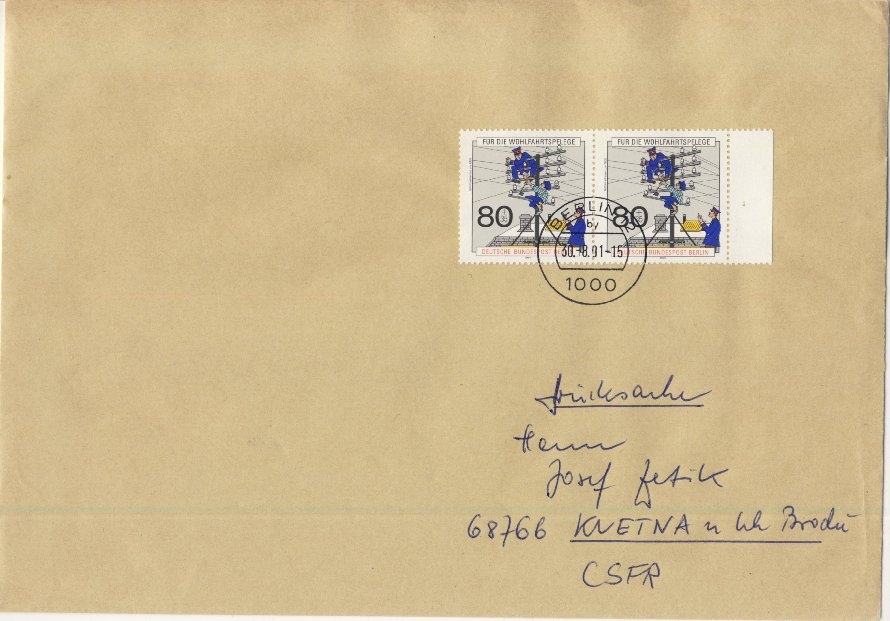 FÜR DIE WOHLFAHRTSPFLEGE
80
DEUTSCHE BUNDESPOST BERLIN
FÜR DIE WOHLFAHRTSPFLEGE
80
DEUTSCHE BUNDESPOST BERLIN
BERLIN
30.-8.91-15
1000
Drucksache
Herrn
Josef Jetik
68766 KNETNA u Uh Brodu
CSFR